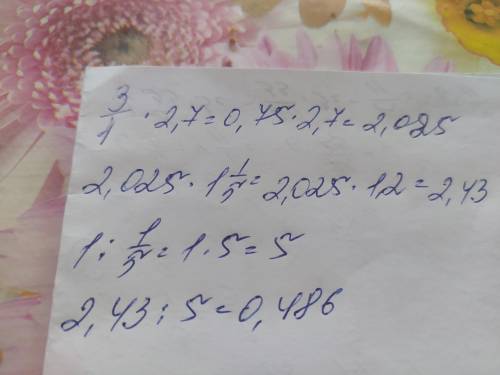 3/4 · 2,7 = 0,75 · 2,7 = 2,025
2,025 · 1 1/5 = 2,025 · 1,2 = 2,43
1 : 1/5 = 1 · 5 = 5
2,43 : 5 = 0,486